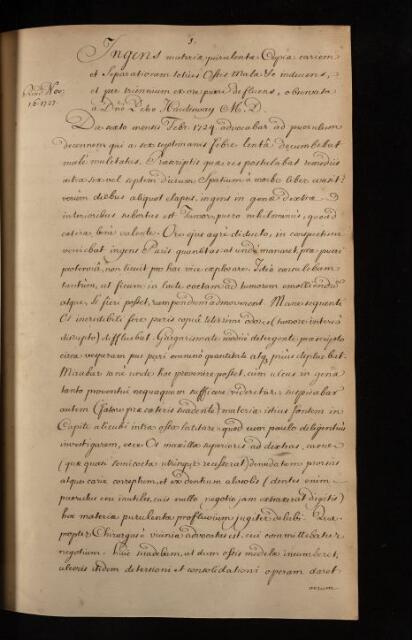 5.
Ingens materiæ purulentæ Copia cariem
et Separationem totius Ossis Malæ inducens,
et per triennium ex ore pueri defluens, observata
Read Nov.
16 1727
a Dno Petro Hardisway M. D.
Die sexto mensis Febr. 1724 advocabar ad puerulum
decennem qui a sex septimanis febre lentâ decumbebat
malè mulctatus. Præscriptis quæ res postulabat remediis
intra sex vel septem dierum Spatium à morbo liber evasit:
verùm diebus aliquot elapsis, ingens in genâ dextrâ
interioribus subortus est Tumor, puero nihilominùs, quoad
cætera, bene valente. Ore quo ægrè diducto, in conspectum
veniebat ingens Puris quantitas; at undè manaret, præ pueri
non licuit pro hac vice explorare. Ideò
tantùm, ut ficum in lacte coctam ad tumorem emolliendum
atque, si fieri posset, rumpendum admoverent. Mane sequenti
Os incredibili fere puris copiâ teterrimi odoris (tumore interiùs
disrupto) diffluebat. Gargarismate modicè detergente præscripto
circa vesperam pus pari omninò quantitate
Mirabar sanè unde hoc provenire posset, cum ulcus in genâ
tanto proventui nequaquam sufficere videretur: suspicabar
autem (fœtore præ cæteris suadente) materiæ istius fontem in
Capite alicubi intra ossa latitare: quod cum paulo diligentiùs
investigarem, ecce Os maxillæ superioris ad dextras,
(quæ quasi semicocta utrinque recesserat) denudatum prorsus
atque carie correptum, et ex dentium alveolis (dentes enim
puerulus ceu inutiles, suis nullo negotio jam extraxerat digitis)
hæc materiæ purulentæ profluvium jugiter delabi. Qua-
propter Chirurgus vicinia advocatus est, cui committebatur
negotium. Huic suadebam, ut dum ossis medelæ incumberet,
ulceris itidem detersioni et consolidationi operam daret